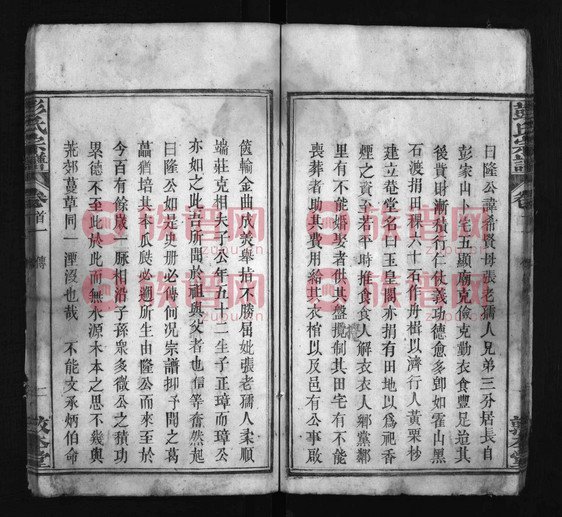 彭氏宗譜
卷首
曰隆公諱希賢母張老孺人兄弟三分居長自
彭家山卜宅五顯南克儉克勤衣食豐足迨其
後貲財漸積行仁仗義功德愈多卽如霍山黑
石渡捐田稞六十石作舟楫以濟行人黃栗杪
建立菴堂名曰玉皇閣亦捐有田地以爲祀香
煙之資至若平時推食食人解衣衣人鄉黨鄰
里有不能婚娶者供其盤攪制其田宅有不能
喪葬者助其費用給其衣棺以及邑有公事啟
篋輸金曲成義舉指不勝屈妣張老孺人柔順
端莊克相夫子公年五十二生子正璋而璋公
亦如之此吉所聞於祖與父者也信等奮然起
曰隆公如是史册必傳何况宗譜抑予聞之葛
藟猶培其本瓜瓞必遡所生由隆公而來至於
今百有餘歲一脈相沿子孫衆多微公之積功
累德不至此於此而無水源木本之思不幾與
荒郊蔓草同一湮沒也哉　不能文承炳伯命
彭氏宗譜
卷首一
傳
一
敦本堂